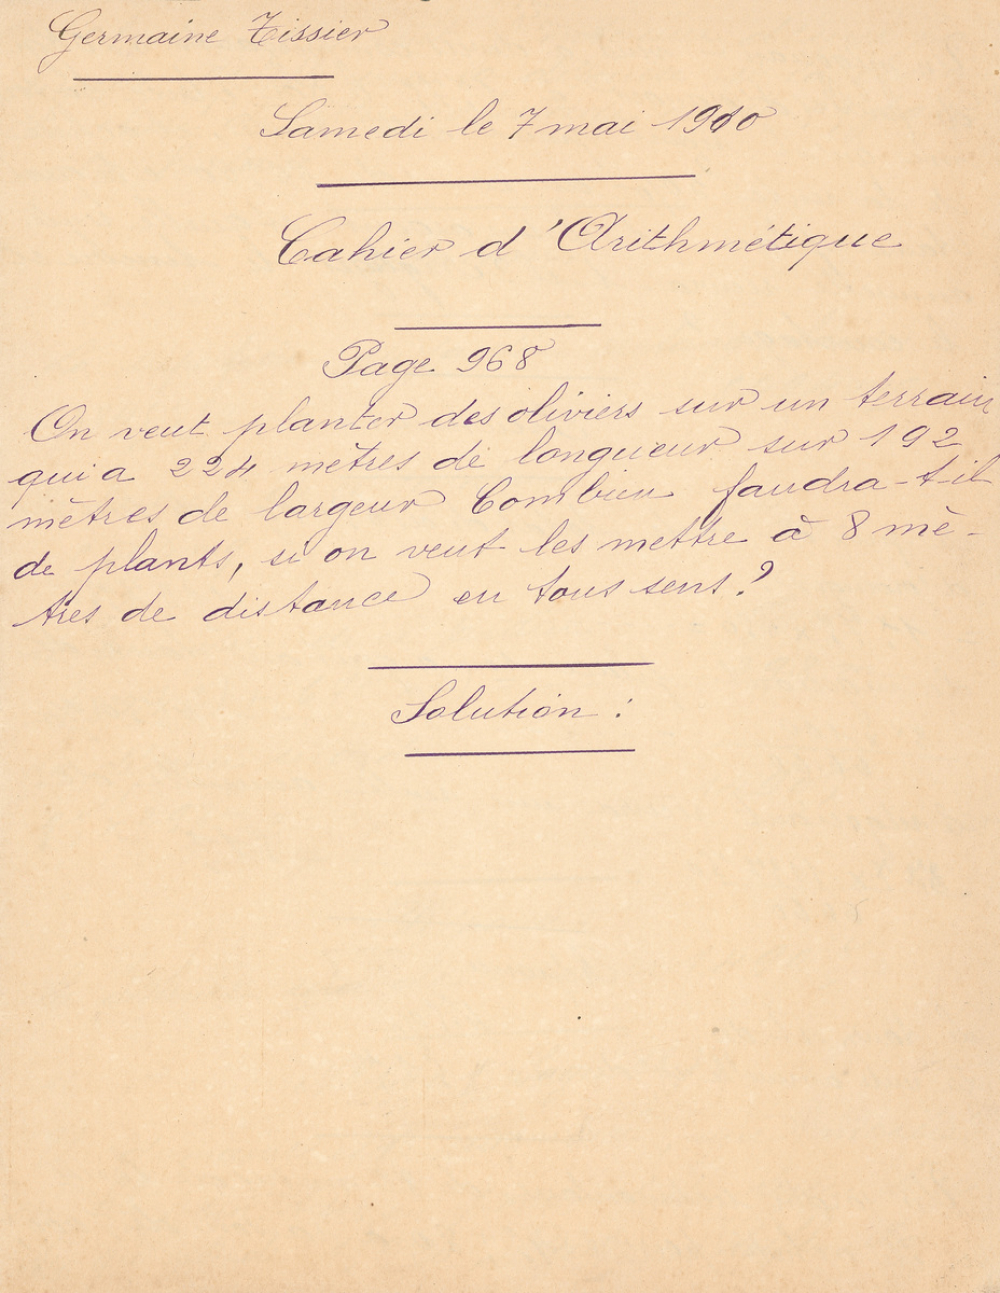 Germaine Tissier
Samedi le 7 mai 1910
Cahier d'Arithmétique
Page 968
On veut planter des oliviers sur un terrain
qui a 224 mètres de longueur sur 192
mètres de largeur Combien faudra-t-il
de plants, si on veut les mettre à 8 mè-
tres de distance en tous sens?
Solution :